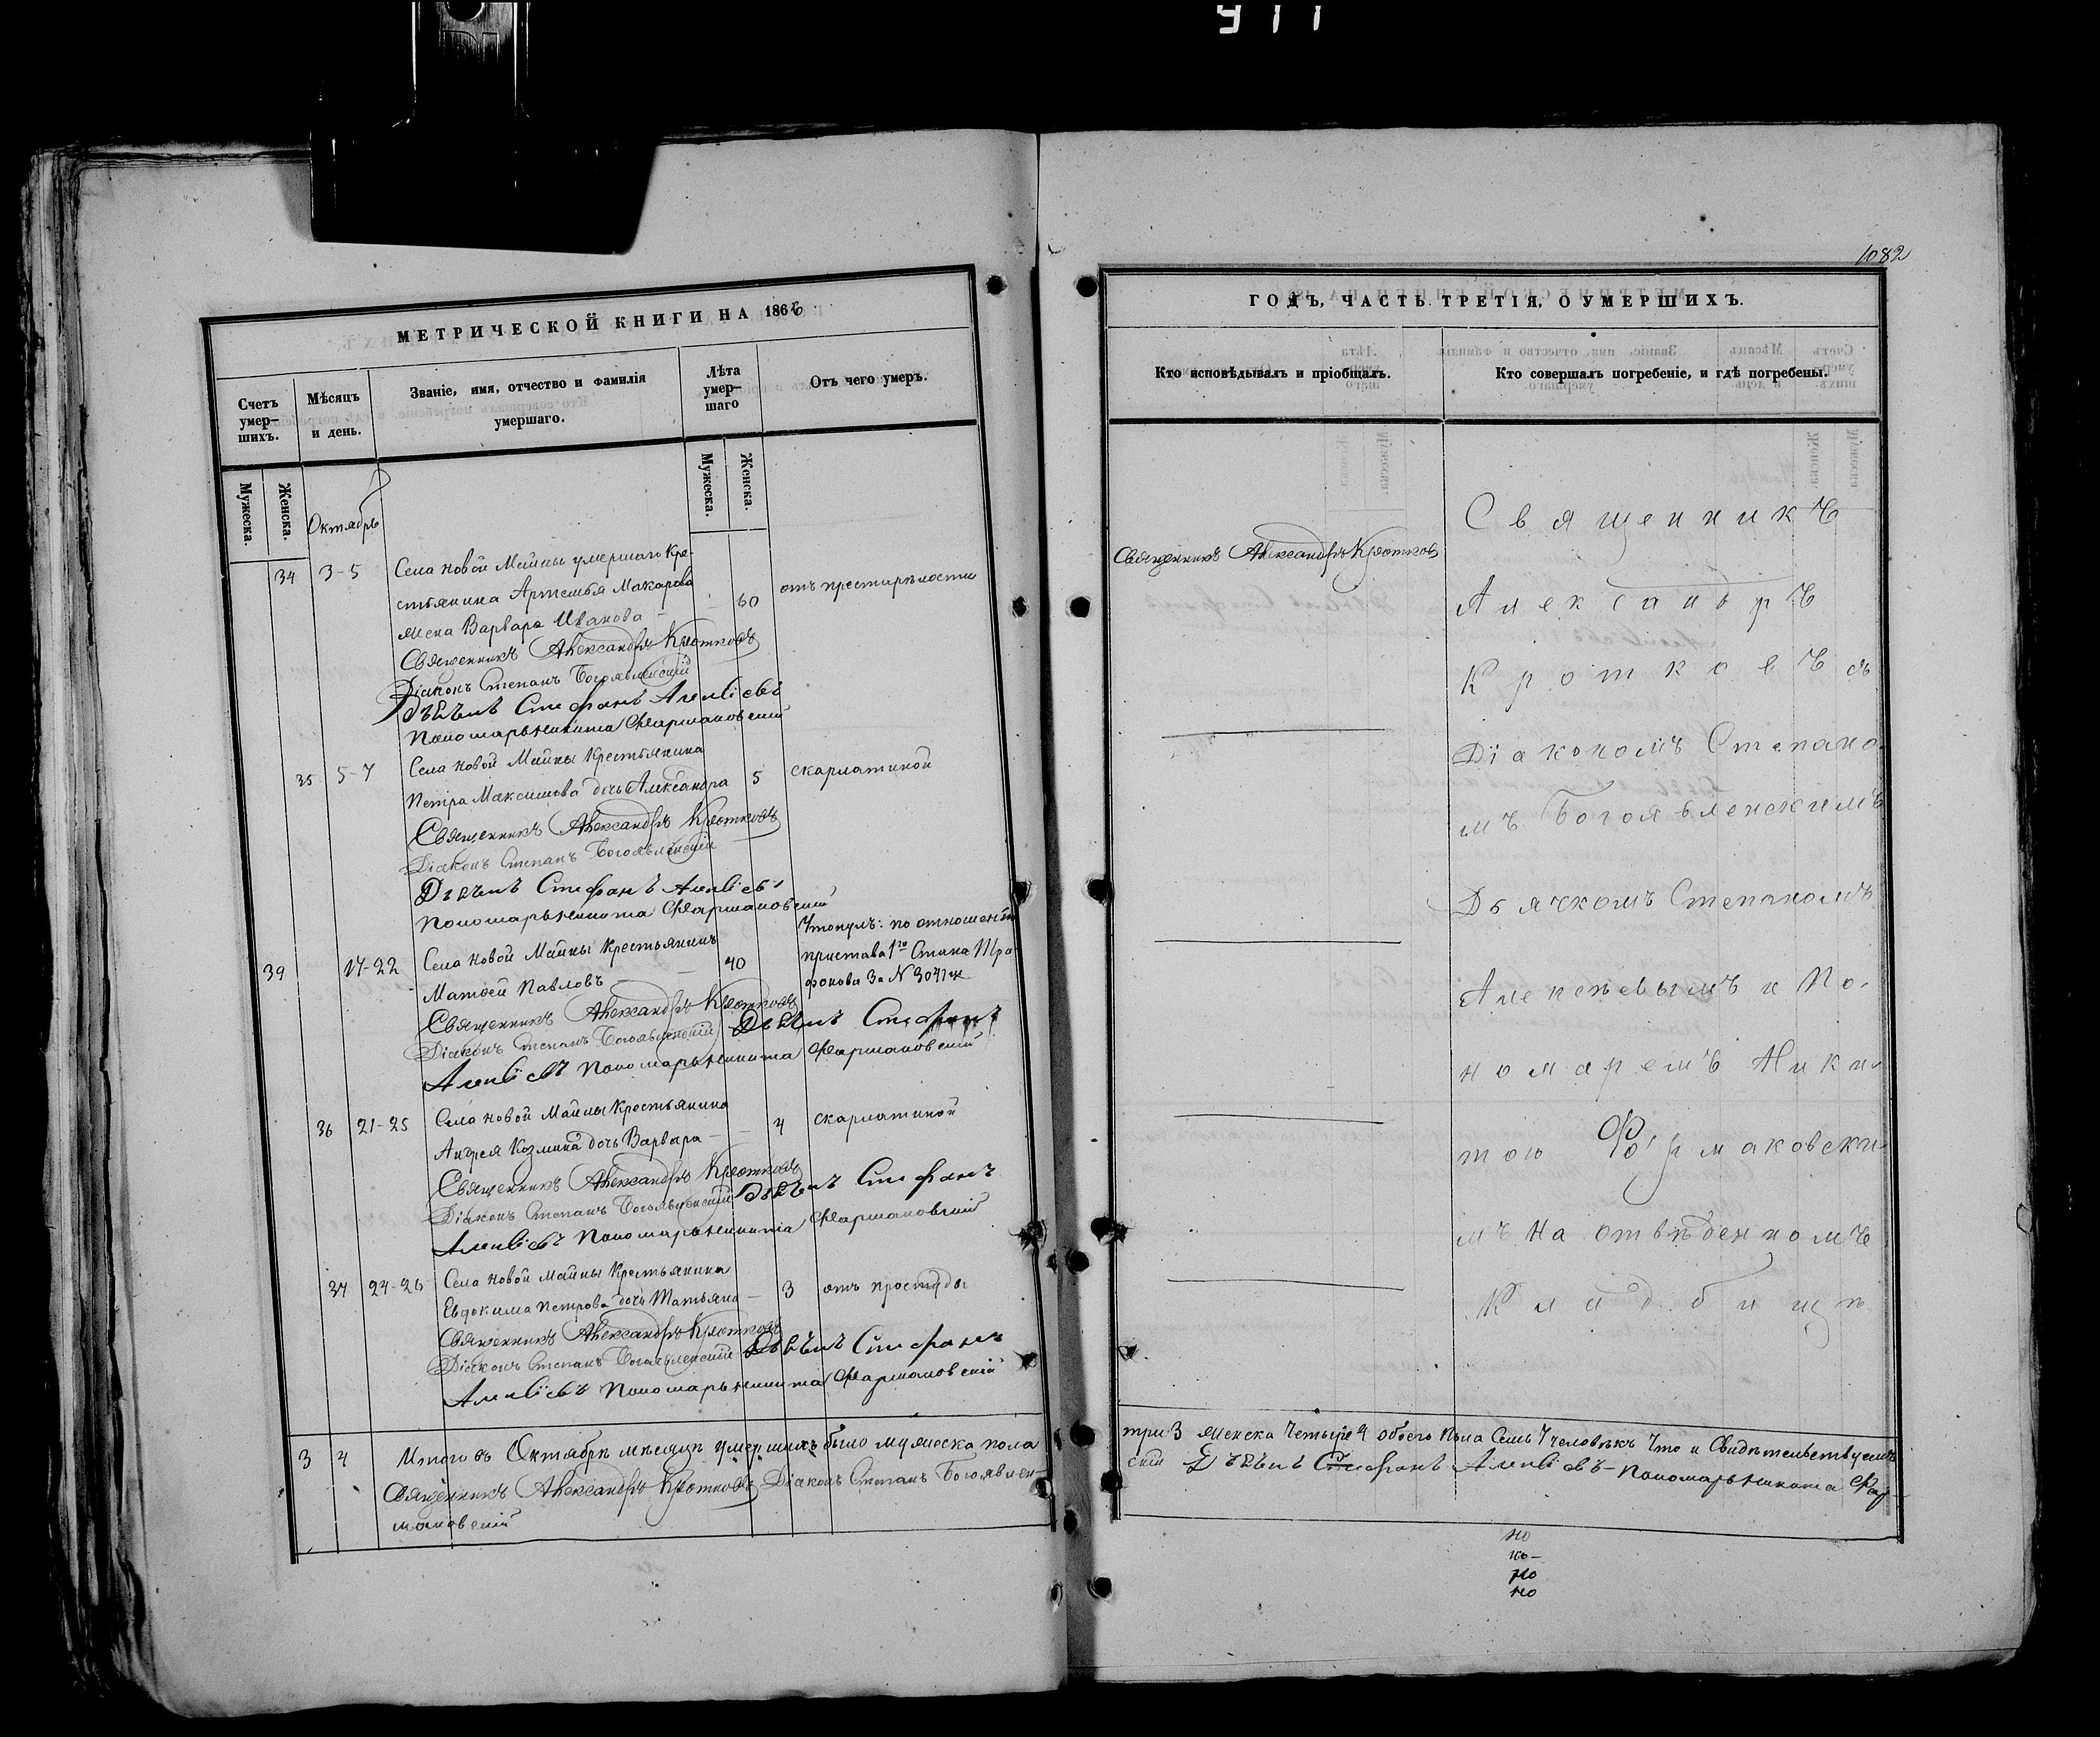 911
1082
МЕТРИЧЕСКОЙ КНИГИ НА 1866
Счетъ умер-шихъ.
Мѣсяцъ и день.
Званіе, имя, отчество и фамилія умершаго.
Лѣта умер-шаго
Отъ чего умеръ.
Мужеска.
Женска.
Мужеска.
Женска.
Октябрь
34 3-5 Села Новой Майны умершаго Кре-
стьянина Артемья Макарова
жена Варвара Иванова — 60 отъ престарѣлости
Священникъ Александръ Кротковъ
Діаконъ Степанъ Богоявленскій
Дьячекъ Стефанъ Алексіевъ
Пономарь Никита Фармаковскій
35 5-7 Села Новой Майны Крестьянина
Петра Максимова дочь Александра 5 скарлатиной
Священникъ Александръ Кротковъ
Діаконъ Степанъ Богоявленскій
Дьячекъ Стефанъ Алексіевъ
Пономарь Никита Фармаковскій
39 17-22 Села Новой Майны Крестьянинъ
Матѳей Павловъ — 40
Утонулъ: по отношенію
пристава 1го Стана
за N 3041
Священникъ Александръ Кротковъ
Діаконъ Степанъ Богоявленскій Дьячекъ Стефанъ
Алексіевъ Пономарь Никита Фармаковскій
36 21-25 Села Новой Майны Крестьянина
Андрея Козмина дочь Варвара — 4 скарлатиной
Священникъ Александръ Кротковъ
Діаконъ Степанъ Богоявленскій Дьячекъ Стефанъ
Алексіевъ Пономарь Никита Фармаковскій
37 24-26 Села Новой Майны Крестьянина
Евдокима Петрова дочь Татьяна — 3 отъ простуды
Священникъ Александръ Кротковъ
Діаконъ Степанъ Богоявленскій Дьячекъ Стефанъ
Алексіевъ Пономарь Никита Фармаковскій
3 4 Итого въ Октябрѣ мѣсяцѣ умершихъ было мужеска пола
Священникъ Александръ Кротковъ Діаконъ Степанъ Богоявлен-
маковскій
ГОДЪ, ЧАСТЬ ТРЕТІЯ, О УМЕРШИХЪ.
Кто исповѣдывалъ и пріобщалъ.
Кто совершалъ погребеніе, и гдѣ погребены.
Священникъ Александръ Кротковъ
Священникъ
Александръ
Кротковъ съ
Діакономъ Степано-
мъ Богоявленскимъ
Дьячкомъ Степаномъ
Алексѣевымъ и По-
номаремъ Ники-
тою Фармаковски-
мъ На отвѣденномъ
Кладбищѣ
три 3 женска Четыре 4 обоего пола Семь 7 человѣкъ Что и Свидѣтельствуемъ
скій Дьячекъ Стефанъ Алексіевъ — Пономарь Никита Фар-
но
но-
но
но